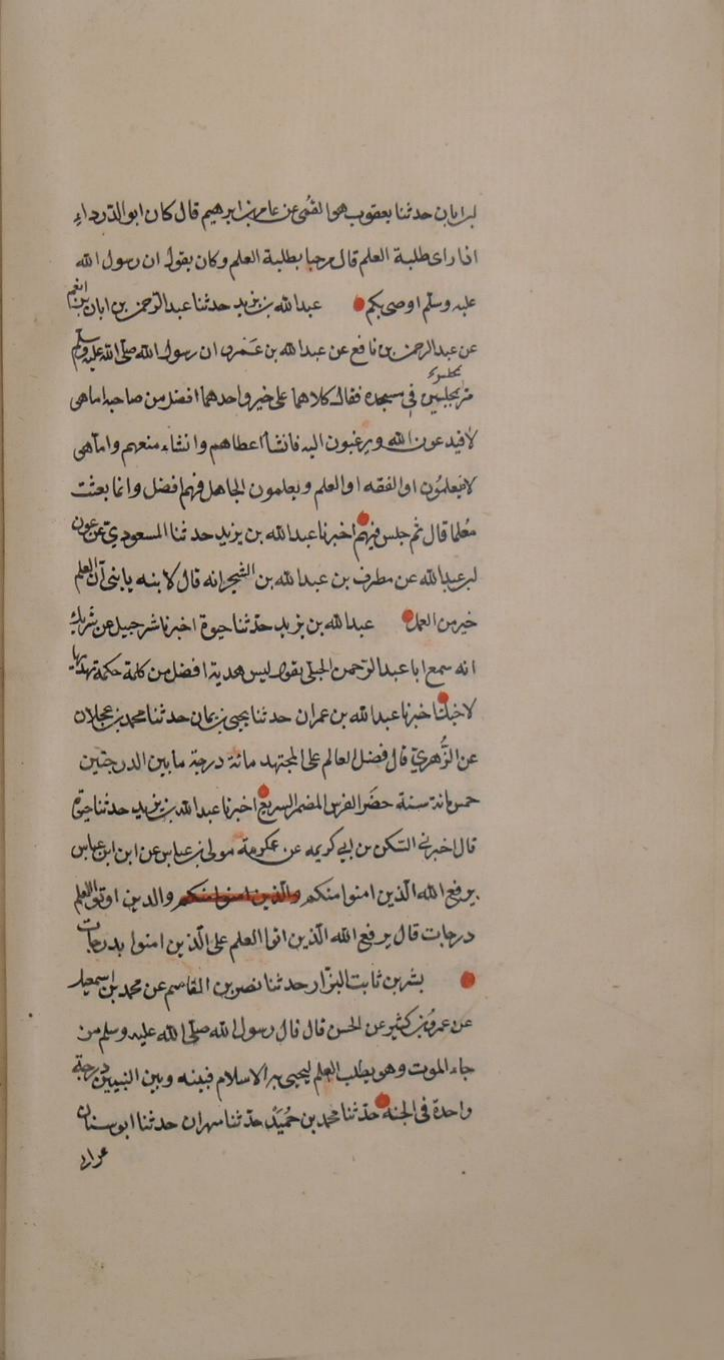 بن ابان حدثنا يعقوب هو القمي عن عامر بن ابرهيم قال كان ابو الدرداء
اذا راى طلبة العلم قال مرحبا بطلبة العلم وكان يقول ان رسول الله
عليه وسلم اوصى بكم عبد الله بن يزيد حدثنا عبد الرحمن بن زياد بن انعم
عن عبد الرحمن بن رافع عن عبد الله بن عمرو ان رسول الله صلى الله عليه وسلم
مر بمجلسين في مسجده فقال كلاهما على خير واحدهما افضل من صاحبه اما هو
لاء فيدعون الله ويرغبون اليه فان شاء اعطاهم وان شاء منعهم واما هو
لاء فيعلمون او الفقه او العلم ويعلمون الجاهل فهم افضل وانما بعثت
معلما قال ثم جلس فيهم اخبرنا عبد الله بن يزيد حدثنا المسعودي عن عون
بن عبد الله عن مطرف بن عبد الله بن الشخير انه قال لابنه يا بني ان العلم
خير من العمل عبد الله بن يزيد حدثنا حيوة اخبرنا شرحبيل بن شريك
انه سمع ابا عبد الرحمن الحبلي يقول ليس هدية افضل من كلمة حكمة تهديها
لاخيك اخبرنا عبد الله بن عمران حدثنا يحيى بن يمان حدثنا محمد بن عجلان
عن الزهري قال فضل العالم على المجتهد مائة درجة ما بين الدرجتين
خمس مائة سنة حضر الفرس المضمر السريع اخبرنا عبد الله بن يزيد حدثنا حيوة
قال اخبرني السكن بن ابي كريمه عن عكرمة مولى بن عباس عن ابن عباس
يرفع الله الذين امنوا منكم والذين امنوا منكم والذين اوتوا العلم
درجات قال يرفع الله الذين اتوا العلم على الذين امنوا بدرجات
بشر بن ثابت البزار حدثنا نصر بن القاسم عن محمد بن اسمعيل
عن عمرو بن كثير عن الحسن قال قال رسول الله صلى الله عليه وسلم من
جاءه الموت وهو يطلب العلم ليحيى به الاسلام فبينه وبين النبيين درجة
واحدة في الجنة حدثنا محمد بن حميد حدثنا مهران حدثنا ابو سنان